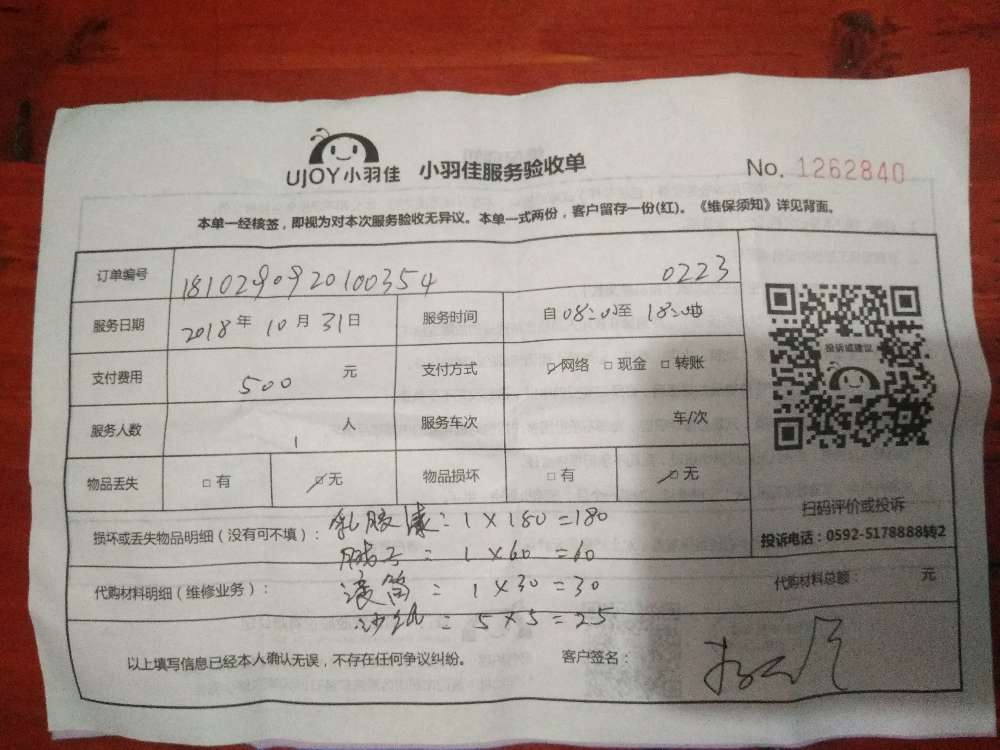 UJOY小羽佳 小羽佳服务验收单 No. 1262840
本单一经核签，即视为对本次服务验收无异议。本单一式两份，客户留存一份(红)。《维保须知》详见背面。
订单编号 1810290920100354 0223
服务日期 2018年10月31日 服务时间 自08:00至18:00时
支付费用 500 元 支付方式 □网络 □现金 □转账
服务人数 1 人 服务车次 车/次
投诉或建议
物品丢失 □有 □无 物品损坏 □有 □无
扫码评价或投诉
投诉电话：0592-5178888转2
损坏或丢失物品明细（没有可不填）： 乳胶漆：1×180=180
腻子：1×60=60
代购材料明细（维修业务）： 滚筒：1×30=30 代购材料总额： 元
沙纸：5×5=25
以上填写信息已经本人确认无误，不存在任何争议纠纷。 客户签名：